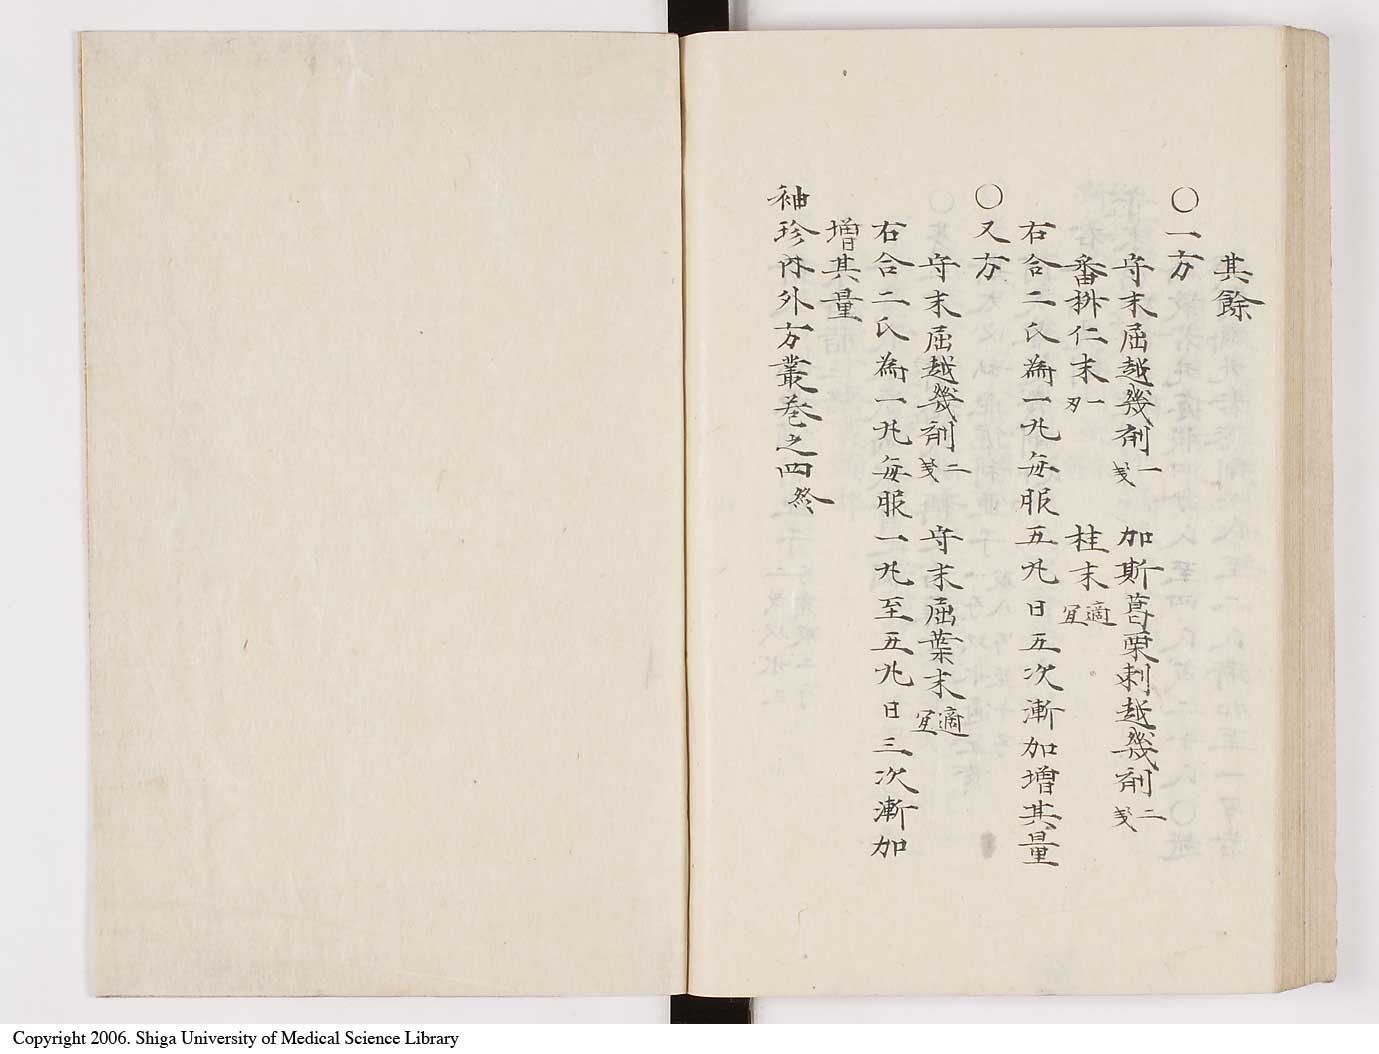 其餘
〇一方
守末屈越幾剤 一戔 加斯蒚栗刺越幾剤 二戔
番椒仁末 一刃 桂末 適宜
右合二氏為一九每服五九日五次漸加增其量
〇又方
守末屈越幾剤 二戔 守末屈葉末 適宜
右合二氏為一九每服一九至五九日三次漸加
增其量
袖珍內外方叢卷之四終
Copyright 2006. Shiga University of Medical Science Library